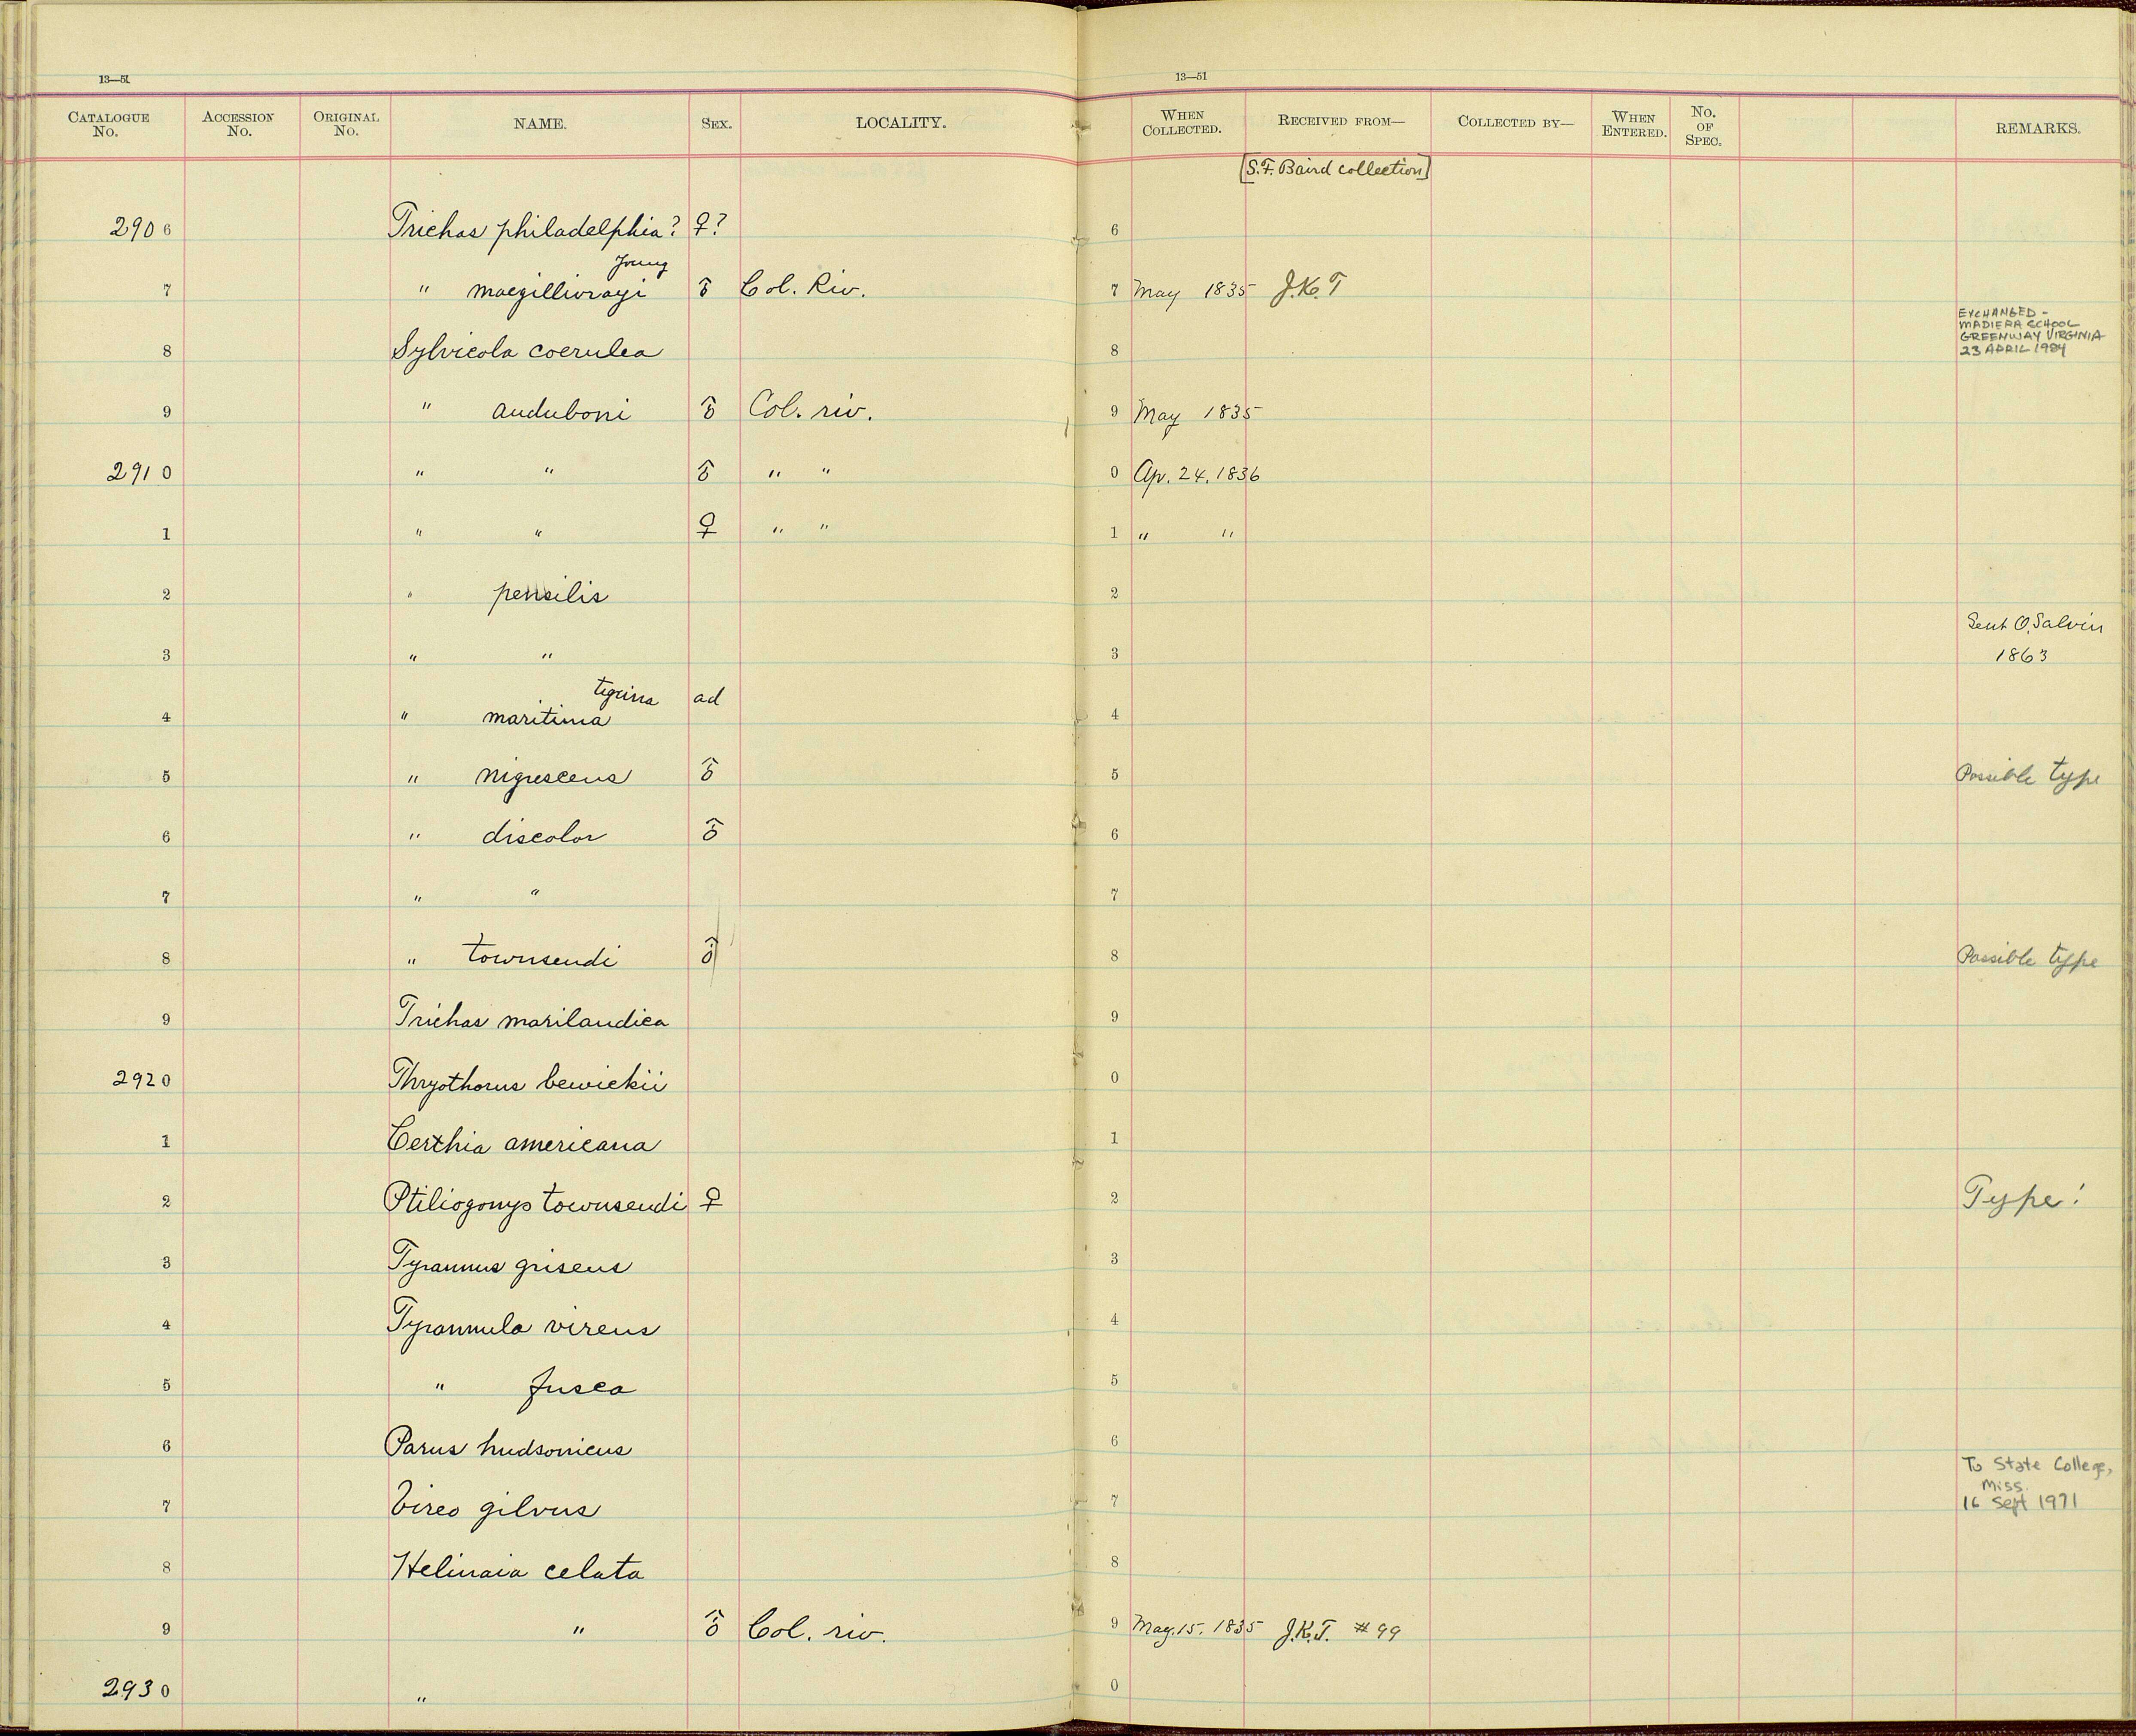 13—51
13—51
CATALOGUE No. ACCESSION No. ORIGINAL No. NAME. SEX. LOCALITY. WHEN COLLECTED. RECEIVED FROM— COLLECTED BY— WHEN ENTERED. No. OF SPEC. REMARKS.
[S.F. Baird collection]
2906 Trichas philadelphia? ♀? 6
Young
7 " macgillivrayi ♂ Col. Riv. 7 May 1835 J.K.T
EXCHANGED -
MADIERA SCHOOL
GREENWAY VIRGINIA
23 APRIL 1984
8 Sylvicola coerulea 8
9 " auduboni ♂ Col. riv. 9 May 1835
2910 " " ♂ " " 0 Ap. 24. 1836
1 " " ♀ " " 1 " "
2 " pensilis 2
Sent O. Salvin
3 " " 3 1863
tigrina ad
4 " maritima 4
5 " nigrescens ♂ 5 Possible type
6 " discolor ♂ 6
7 " " 7
8 " townsendi ♂ 8 Possible type
9 Trichas marilandica 9
2920 Thryothorus bewickii 0
1 Certhia americana 1
2 Ptiliogonys townsendi ♀ 2 Type!
3 Tyrannus griseus 3
4 Tyrannula virens 4
5 " fusca 5
6 Parus hudsonicus 6
To State College,
Miss.
7 Vireo gilvus 7 16 Sept 1971
8 Helinaia celata 8
9 " ♂ Col. riv. 9 May. 15. 1835 J.K.T. #99
2930 " 0